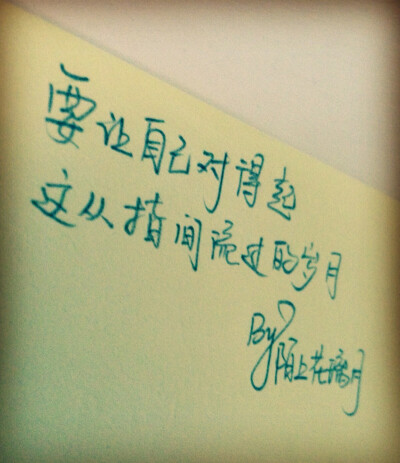 要让自己对得起
这从指间流过的岁月
By 陌上花璃月